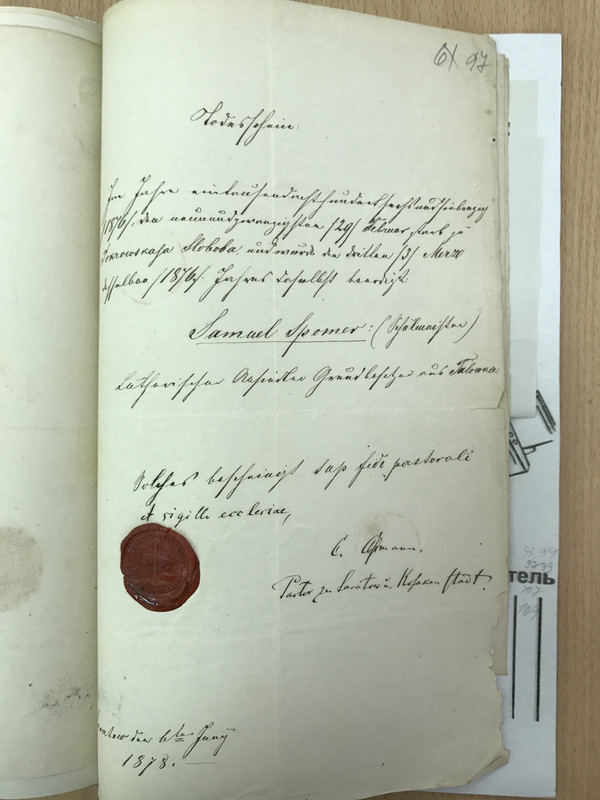 61 97
Todesschein.
Im Jahre eintausendachthundertsechsundsiebenzig
/1876/, den neunundzwanzigsten /29/ Februar starb zu
Pokrowskaja Sloboda, und wurde den dritten /3/ Merz
desselben /1876/. Jahres daselbst beerdigt:
Samuel Spomer: (Schulmeister)
Lutherischer Ansiedler Grundbesitzer aus
Solches bescheinigt sub fide pastorali
et sigillo ecclesiae,
C. Aßmann.
Pastor zu Saratow u. Kosakenstadt.
Saratow den 6ten Juny
1878.
тель